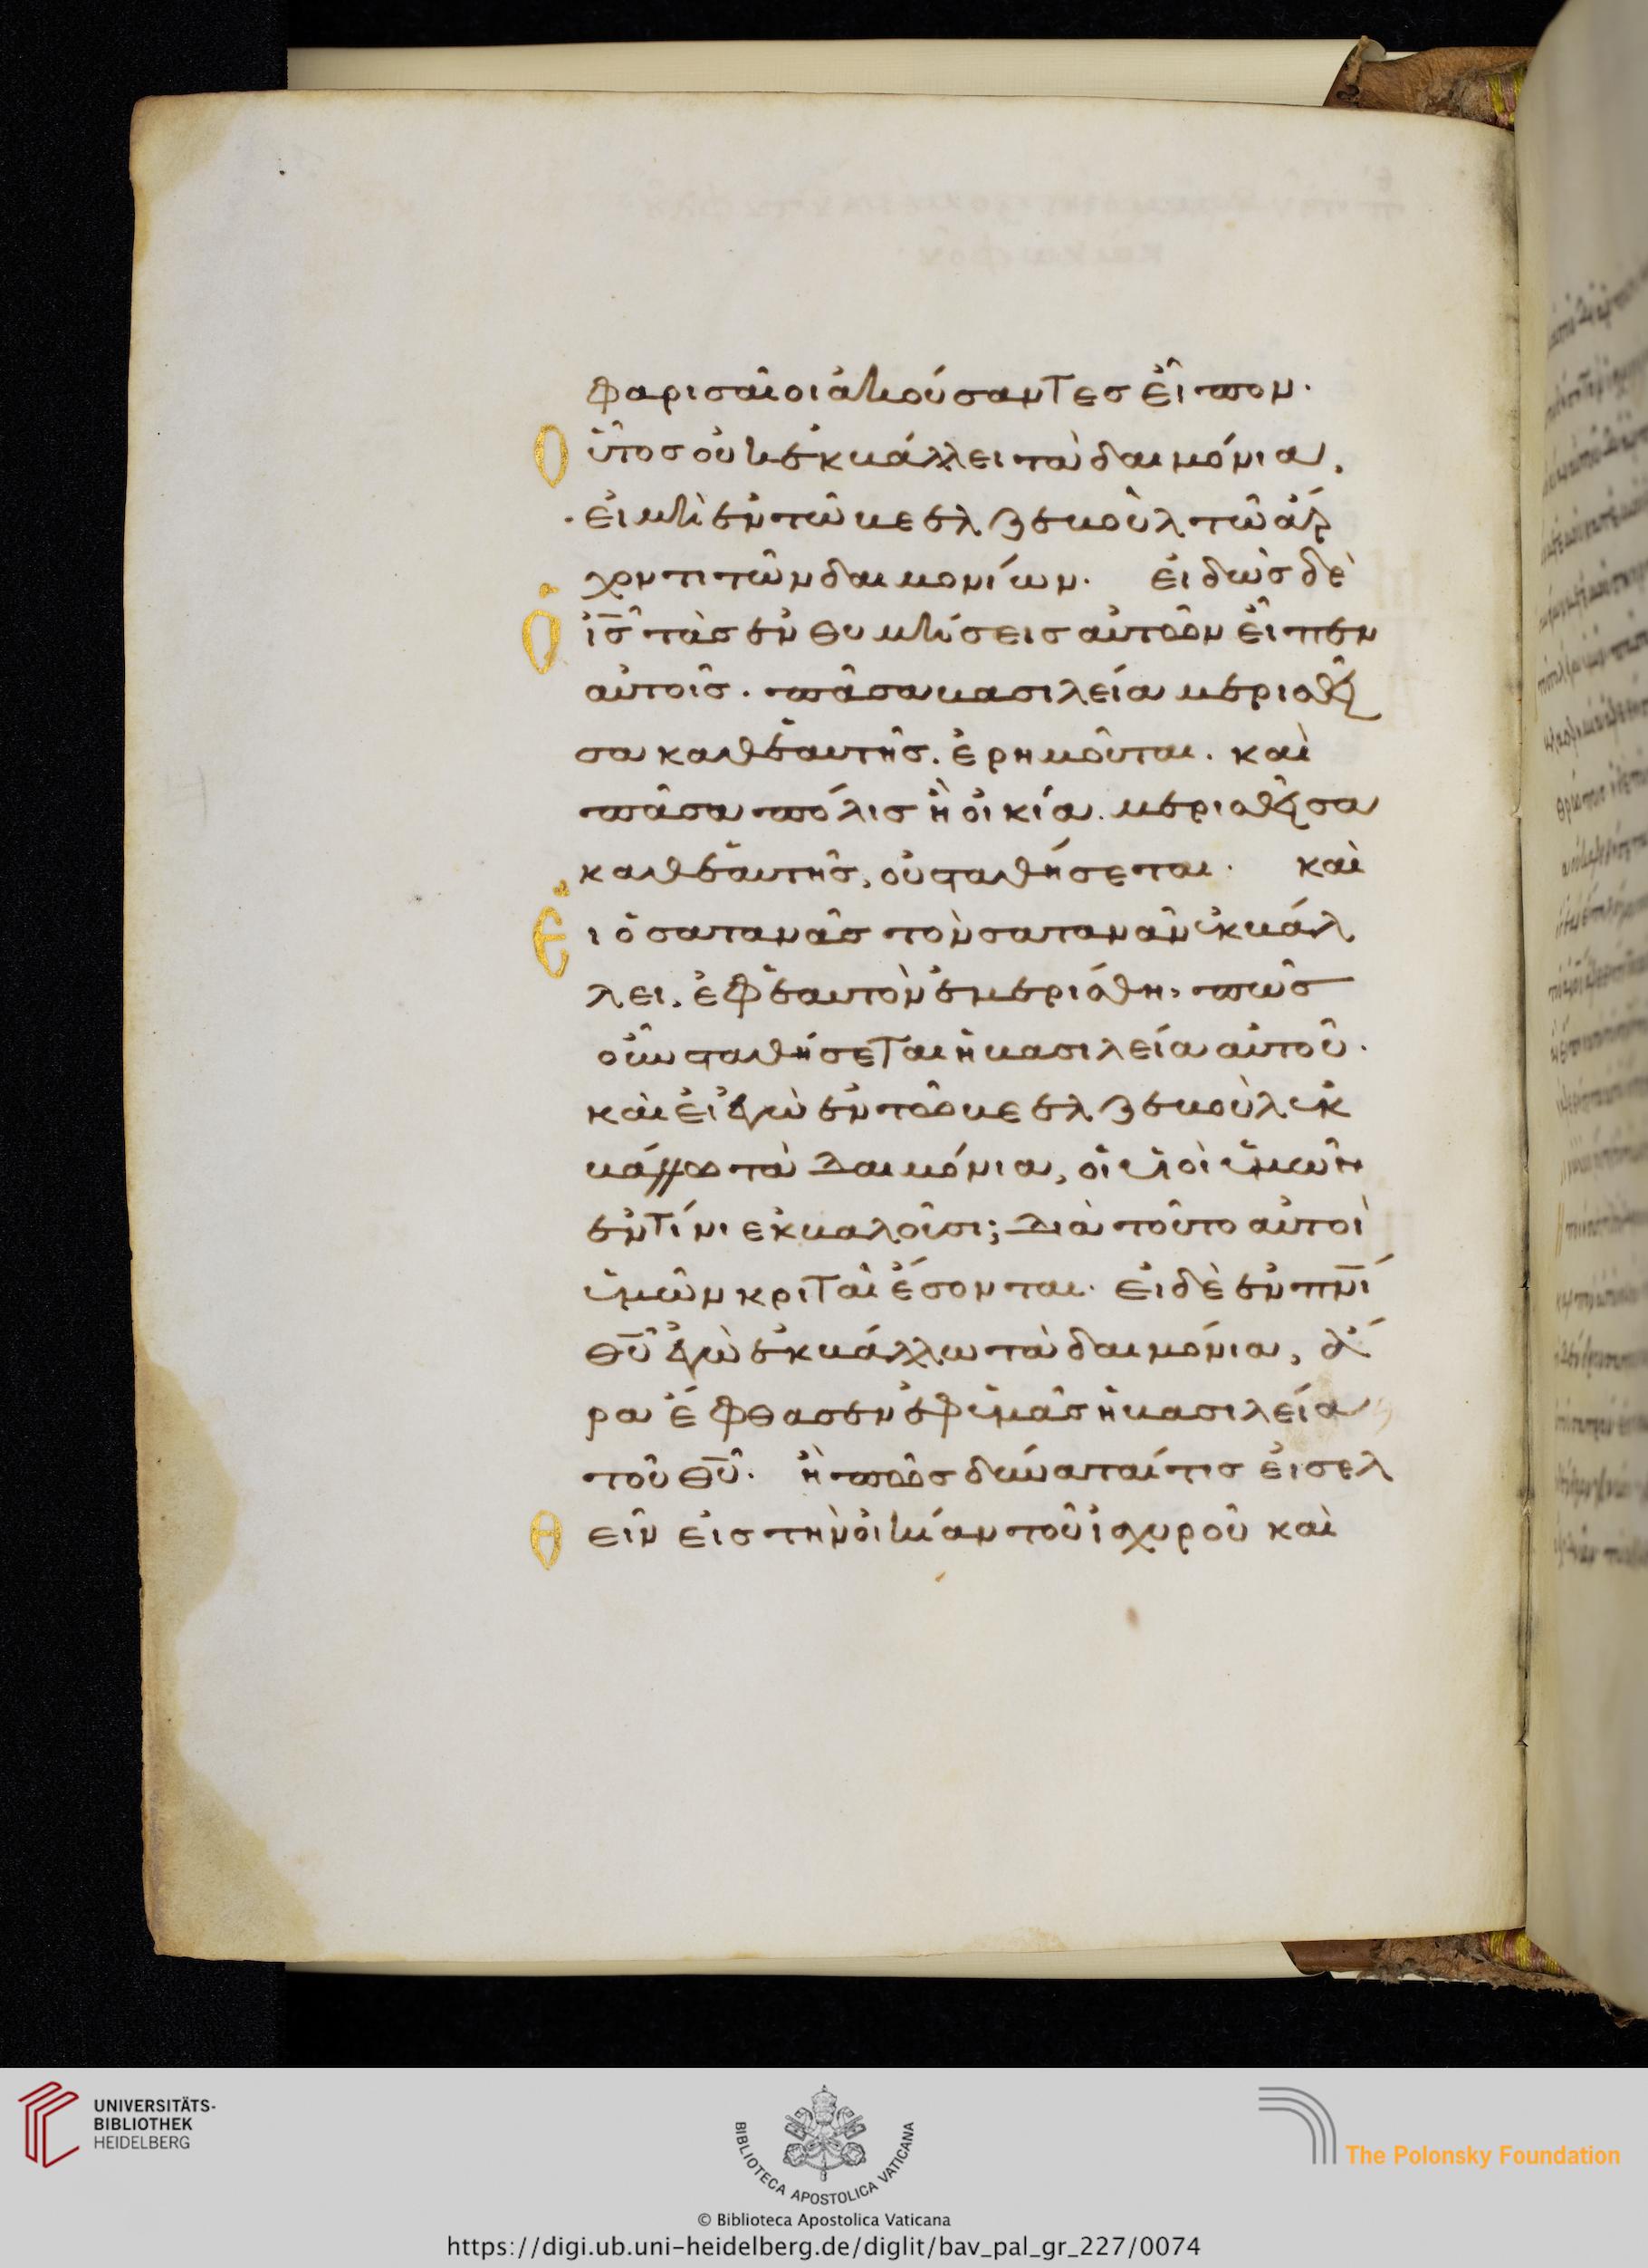 φαρισαῖοι ἀκούσαντες εἶπον·
Οὗτος οὐκ ἐκβάλλει τὰ δαιμόνια,
εἰ μὴ ἐν τῶ βεελζεβοὺλ τῶ ἄρ
χοντι τῶν δαιμονίων· εἰδὼς δὲ
Ὁ ἰς τὰς ἐνθυμήσεις αὐτῶν εἶπεν
αὐτοῖς· πᾶσα βασιλεία μερισθεῖ
σα καθ ἑαυτῆς. ἐρημοῦται. καὶ
πᾶσα πόλις ἢ οἰκία. μερισθεῖσα
καθ ἑαυτῆς, οὐ σταθήσεται· καὶ
Εἰ ὁ σατανᾶς τὸν σατανᾶν ἐκβάλ
λει. ἐφ ἑαυτὸν ἐμερίσθη, πῶς
οὖν σταθήσεται ἡ βασιλεία αὐτοῦ·
καὶ εἰ ἐγὼ ἐν τῶ βεελζεβοὺλ ἐκ
βάλλω τὰ δαιμόνια, οἱ υἱοὶ ὑμῶν
ἐν τίνι ἐκβαλοῦσι; Διὰ τοῦτο αὐτοὶ
ὑμῶν κριταὶ ἔσονται· εἰ δὲ ἐν πνι
θυ ἐγὼ ἐκβάλλω τὰ δαιμόνια, ἄ
ρα ἔφθασεν ἐφ ὑμᾶς ἡ βασιλεία
τοῦ θυ· ἢ πῶς δύναταί τις εἰσελ
Θεῖν εἰς τὴν οἰκίαν τοῦ ἰσχυροῦ καὶ
UNIVERSITÄTS-
BIBLIOTHEK
HEIDELBERG
BIBLIOTECA APOSTOLICA VATICANA
The Polonsky Foundation
© Biblioteca Apostolica Vaticana
https://digi.ub.uni-heidelberg.de/diglit/bav_pal_gr_227/0074